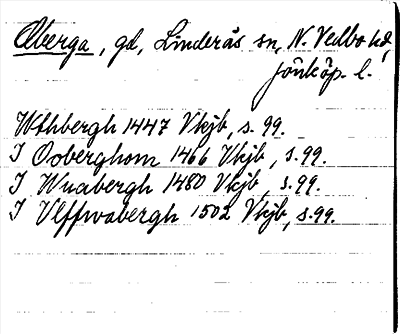 Olberga, gd, Linderås sn, N. Vedbo hd,
Jönköp. l.
Wthbergh 1447 Vkjb, s. 99.
I Ooberghom 1466 Vkjb, s. 99.
I Wuabergh 1480 Vkjb, s. 99.
I Vlffwabergh 1502 Vkjb, s. 99.